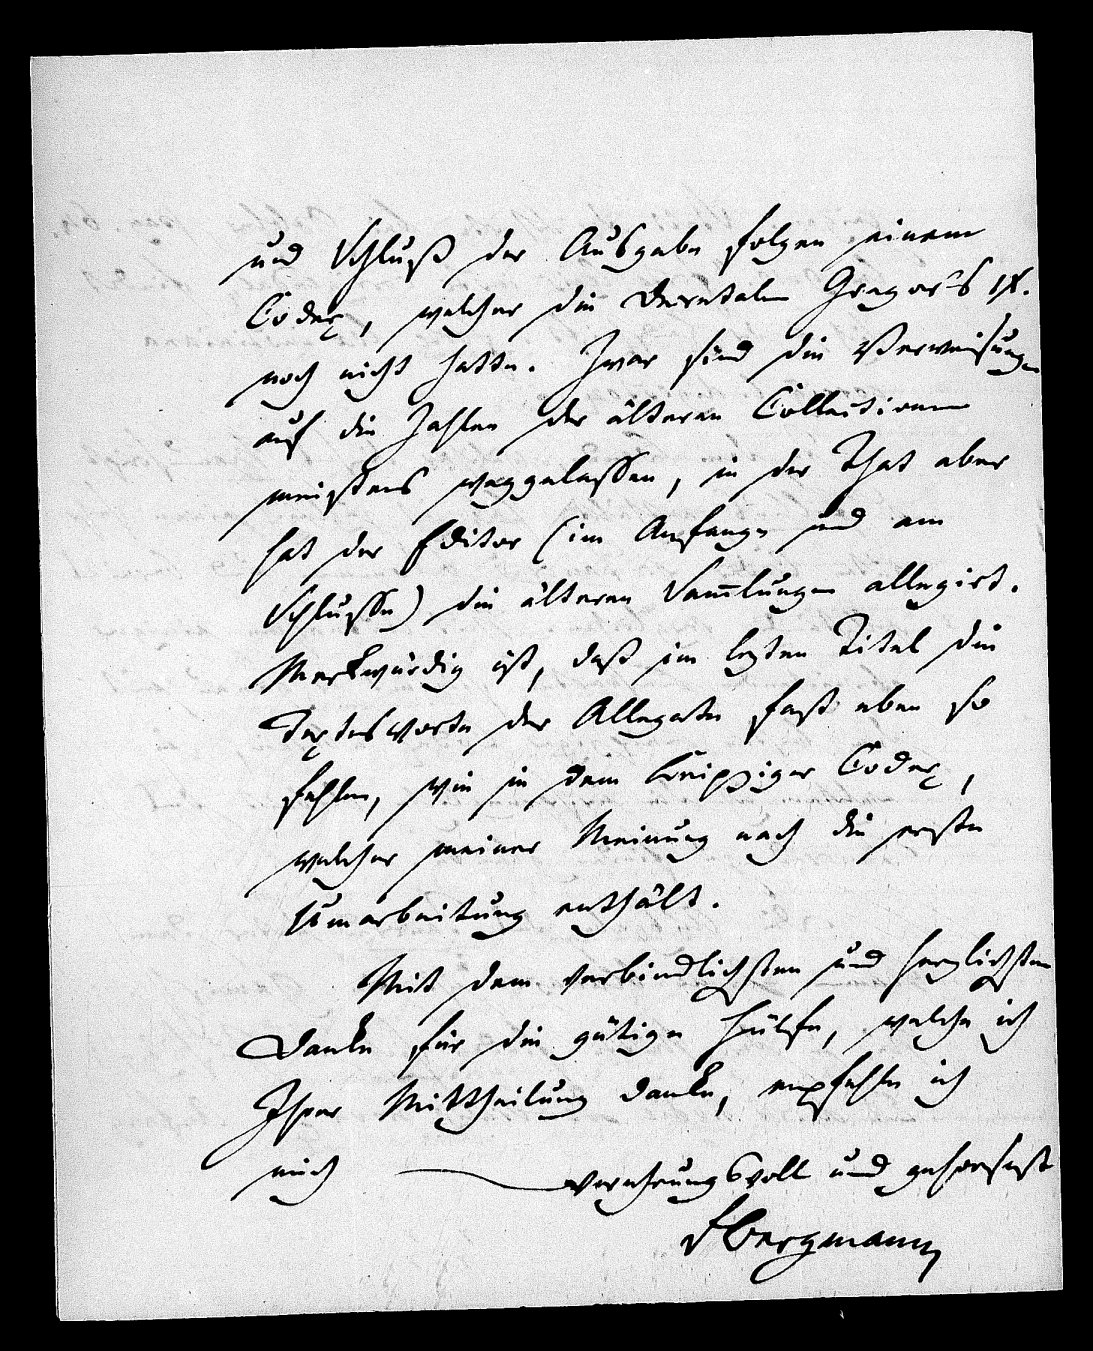 und Schluß der Ausgabe folgen einem
Codex, welcher die Decretalen Gregor's IX.
noch nicht hatte. Zwar sind die Verweisungen
auf die Zahlen der älteren Collectionen
meistens weggelassen, in der That aber
hat der Editor (im Anfange und am
Schlusse) die älteren Sam̄lungen allegirt.
Merkwürdig ist, daß im lezten Titel die
Textesworte der Allegate fast eben so
fehlen, wie in dem Leipziger Codex,
welcher meiner Meinung nach die erste
Umarbeitung enthält.
Mit dem verbindlichsten und herzlichsten
Danke für die gütige Hülfe, welche ich
Ihrer Mittheilung danke, empfehle ich
mich verehrungsvoll und gehorsamst
FBergmann